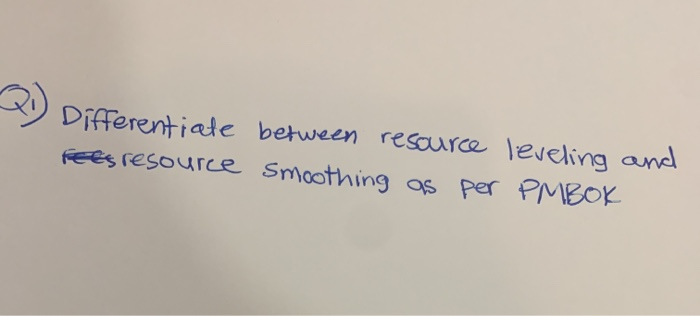 Q1) Differentiate between resource leveling and
resource smoothing as per PMBOK